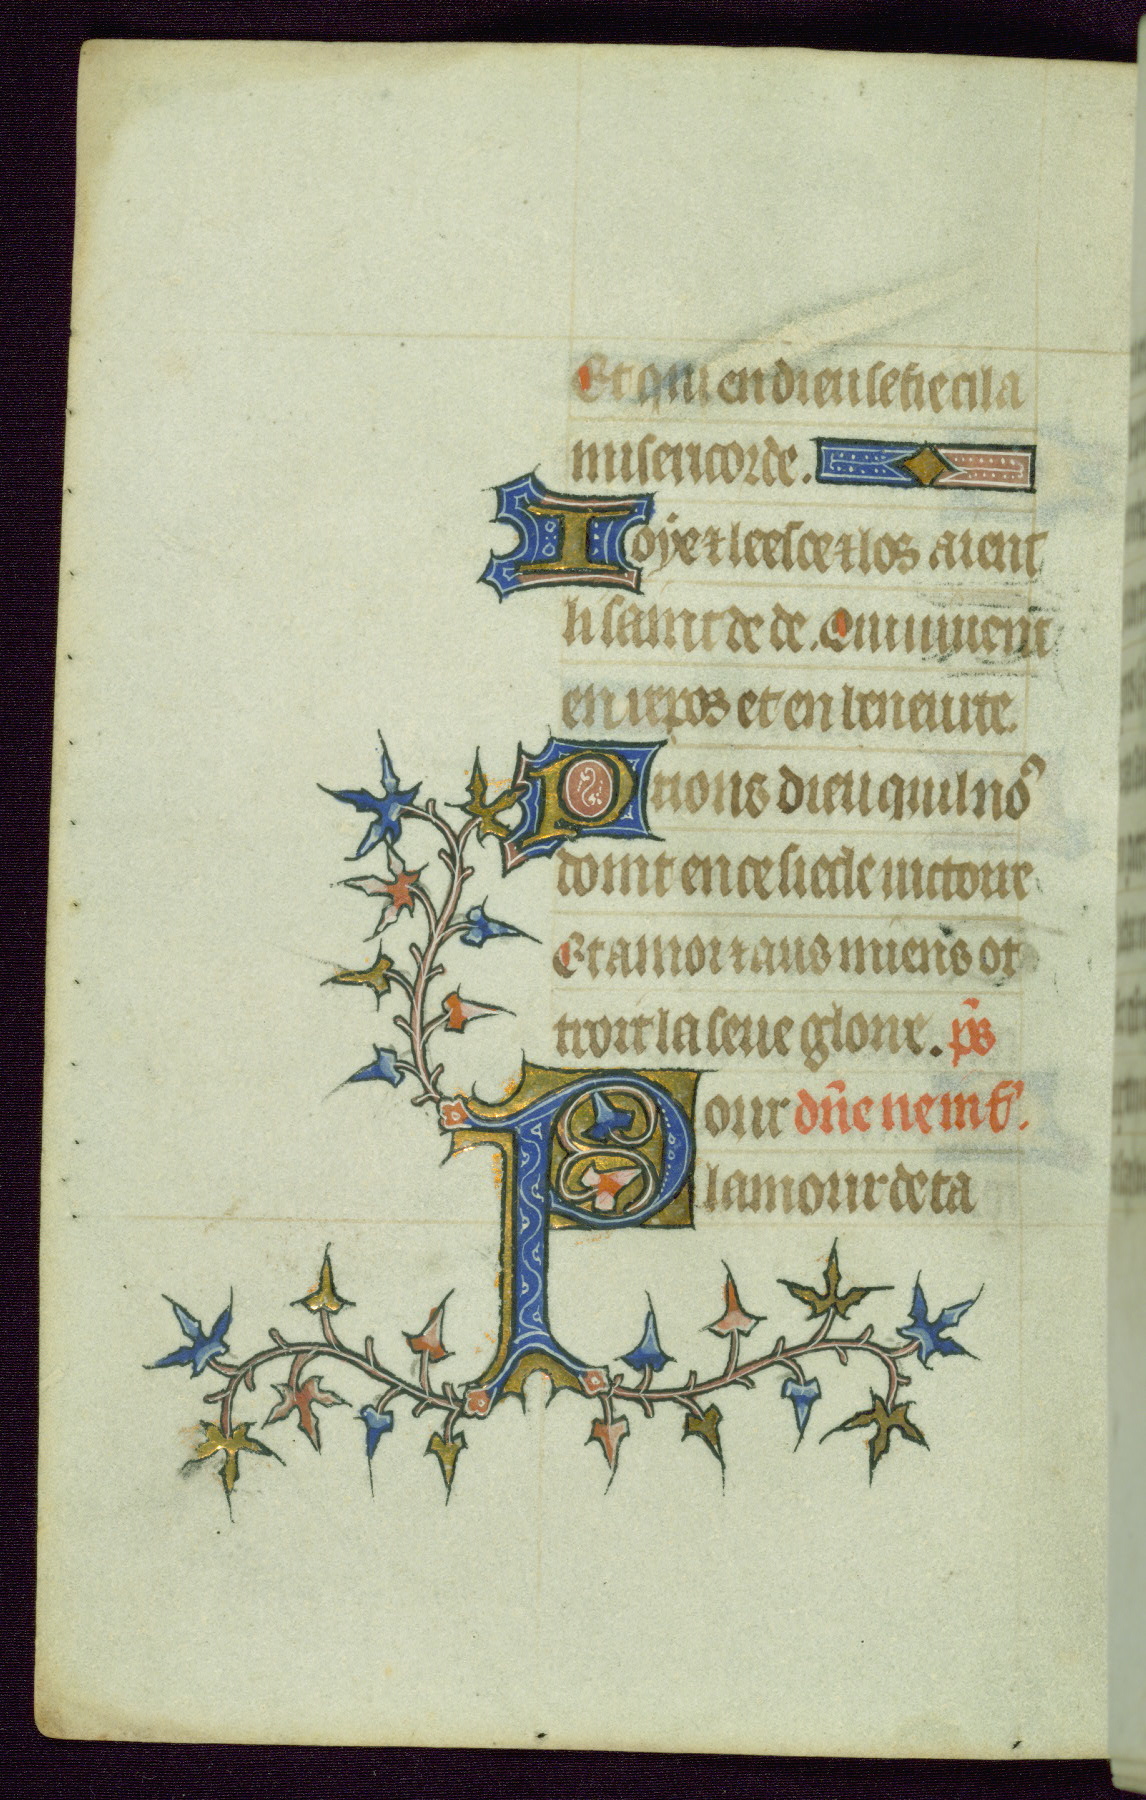 Et qui en dieu se fie cil a
misericorde.
Ioye ⁊ leesce ⁊ los aient
li saint de de. Qui uiuent
en repos et en beneurte
Prions dieu quil no᷒
doint en ce siecle uictoire
Et a mort aus miens ot
troit la seue gloire. p̄s
Pour dn̄e ne in f᷒.
lamour de ta